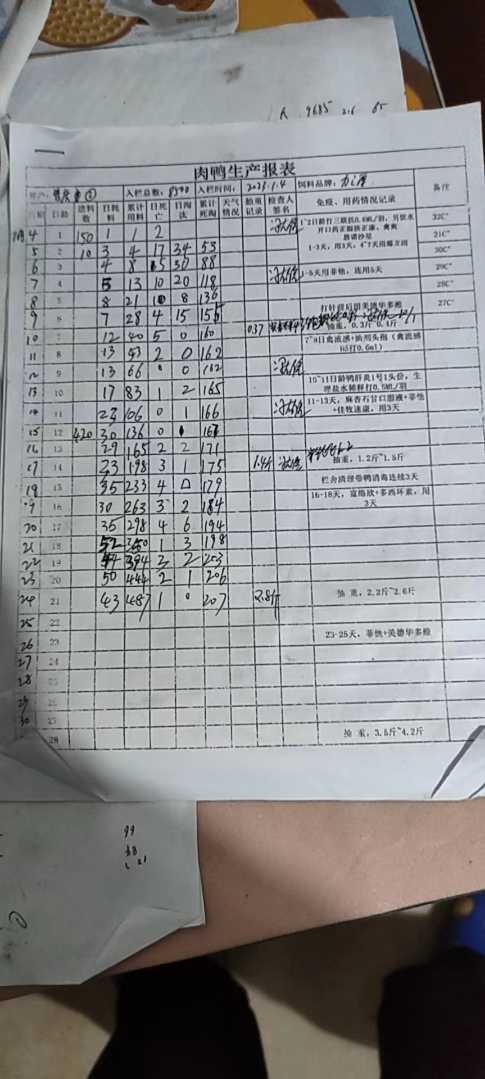 9685 216 65
肉鸭生产报表
入栏总数: 8790 入栏时间: 2023.1.4 饲料品牌:
日期 日龄 进料数 日耗料 累计用料 日死亡 日淘汰 累计死淘 天气情况 抽重记录 检查人签名 免疫、用药情况记录 备注
4 1 150 1 1 2 32C°
5 2 10 3 4 17 34 53 31C°
1-3天, 用3天,
30C°
6 3 4 8 5 30 88
7 4 5 13 10 20 118 -5天用菲他, 连用5天 29C°
28C°
8 5 8 21 10 8 136
9 6 7 28 4 15 155 打针前后用美德华多维 27C°
10 7 12 40 5 0 160 0.37 抽重, 0.3斤 0.4斤
7~9日禽流感+
11 8 13 53 2 0 162
12 9 13 66 0 0 162
13 10 17 83 1 2 165 10~11日龄鸭肝炎1号1头份, 生理盐水稀释打0.5ML/羽
14 11 23 106 0 1 166 11-13天, 麻杏石甘口服液+菲他+佳牧速康, 用3天
15 12 420 30 136 0 1 167
16 13 29 165 2 2 171
17 14 23 198 3 1 175 1.4斤 抽重, 1.2斤~1.5斤
18 15 35 233 4 0 179 栏舍清理带鸭消毒连续3天
19 16 30 263 3 2 184 16-18天, 富络欣+多西环素, 用3天
20 17 35 298 4 6 194
21 18 52 350 1 3 198
22 19 44 394 3 2 203
23 20 50 444 2 1 206
24 21 43 487 1 0 207 2.8斤 抽 重, 2.2斤~2.6斤
25 22
26 23 23-25天, 菲他+美德华多维
27 24
28 25
29 26
30 27
28 抽 重, 3.5斤~4.2斤
99
38